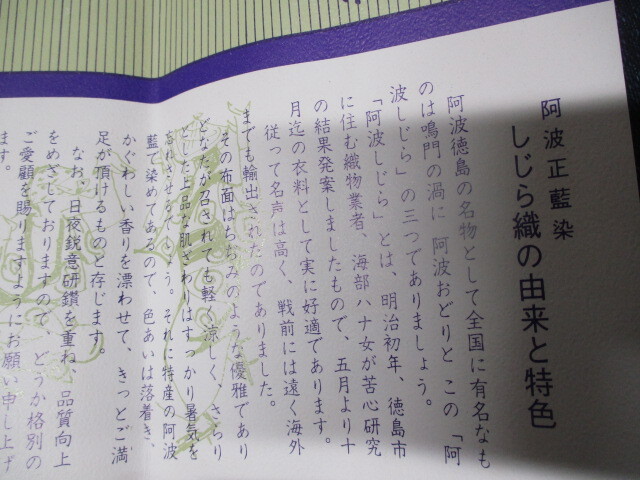 阿波正藍染
しじら織の由来と特色
阿波徳島の名物として全国に有名なも
のは鳴門の渦に 阿波おどりと この「阿
波しじら」の三つでありましょう。
「阿波しじら」とは、明治初年、徳島市
に住む織物業者、海部ハナ女が苦心研究
の結果発案しましたもので、五月より十
月迄の衣料として実に好適であります。
従って名声は高く、戦前には遠く海外
までも輸出されたのでありました。
その布面はちぢみのような優雅であり
どなたが召されても軽く涼しく、さらり
とした上品な肌ざわりはすっかり暑気を
忘れさせるでしょう。それに特産の阿波
藍で染めてあるので、色あいは落着き、
かぐわしい香りを漂わせて、きっとご満
足が頂けるものと存じます。
なお、日夜鋭意研鑽を重ね、品質向上
をめざしておりますので、どうか格別の
ご愛顧を賜りますようにお願い申し上げ
ます。